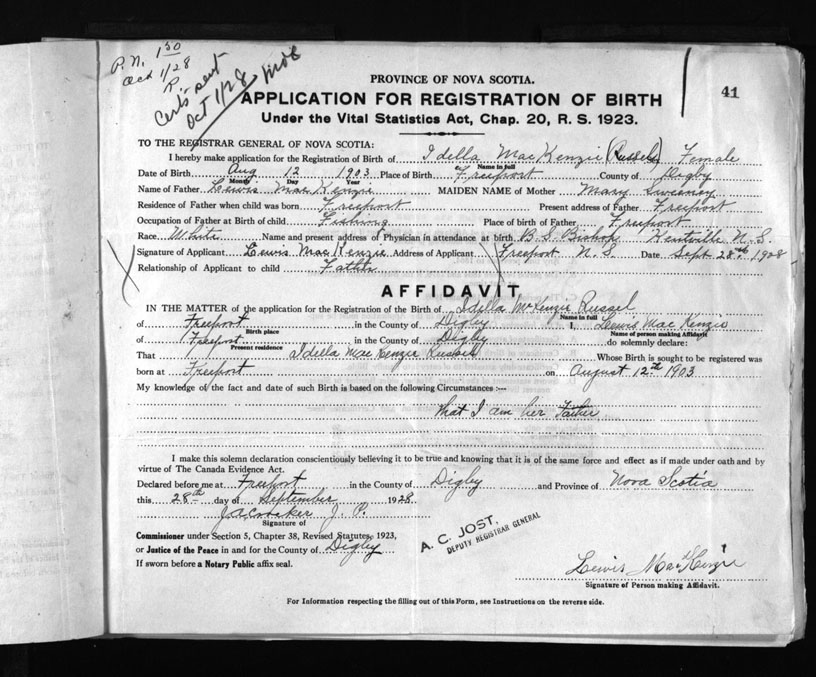 P.N. 1 50
Oct 1/28
R.
Certs sent
Oct 1/28
41
PROVINCE OF NOVA SCOTIA.
APPLICATION FOR REGISTRATION OF BIRTH
Under the Vital Statistics Act, Chap. 20, R. S. 1923.
TO THE REGISTRAR GENERAL OF NOVA SCOTIA:
I hereby make application for the Registration of Birth of Idella MacKenzie (Russel) Female
Name in full
Date of Birth Aug 12 1903 Place of Birth Freeport County of Digby
Month Day Year
Name of Father Lewis MacKenzie MAIDEN NAME of Mother Mary Sweeney
Residence of Father when child was born Freeport Present address of Father Freeport
Occupation of Father at Birth of child Fishing Place of birth of Father Freeport
Race White Name and present address of Physician in attendance at birth B. S. Bishop Kentville N. S.
Signature of Applicant Lewis MacKenzie Address of Applicant Freeport N. S. Date Sept 28th 1908
Relationship of Applicant to child Father
AFFIDAVIT
IN THE MATTER of the application for the Registration of the Birth of Idella McKenzie Russel
Name in full
of Freeport in the County of Digby I, Lewis MacKenzie
Birth place Name of person making Affidavit
of Freeport in the County of Digby do solemnly declare:
Present residence
That Idella MacKenzie Russel Whose Birth is sought to be registered was
born at Freeport on August 12th 1903
My knowledge of the fact and date of such Birth is based on the following Circumstances :—
that I am her Father
I make this solemn declaration conscientiously believing it to be true and knowing that it is of the same force and effect as if made under oath and by
virtue of The Canada Evidence Act.
Declared before me at Freeport in the County of Digby and Province of Nova Scotia
this 28th day of September 1928
J. P.
Signature of
A. C. JOST,
DEPUTY REGISTRAR GENERAL
Commissioner under Section 5, Chapter 38, Revised Statutes, 1923,
or Justice of the Peace in and for the County of Digby
If sworn before a Notary Public affix seal.
Lewis MacKenzie
Signature of Person making Affidavit.
For Information respecting the filling out of this Form, see Instructions on the reverse side.